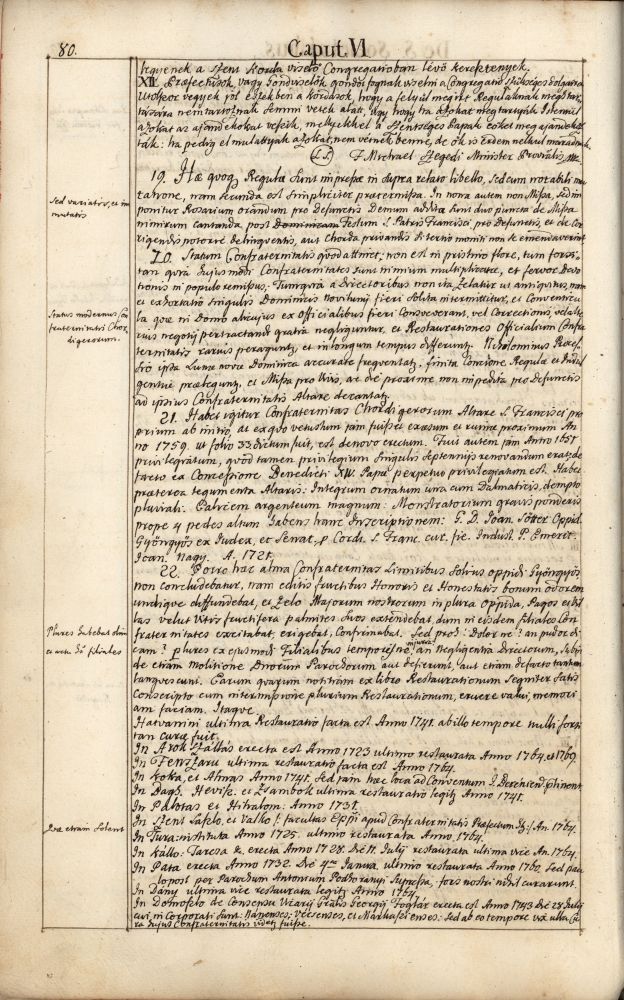 80.
Caput VI
legyenek a szent Korda viselő Congregatioban lévő keresztenyek.
XII. Praefectusok, vagy Gondviselők gondos fognak viselni a Congregatio szükséges dolgaira
Utolszor vegyék jól eszekben a Kordások, hogy a felyül megirt Regulaknak megtar,
tására nem tartoznak semmi vétek alatt, ugy hogy ha azokat megtartyák Istentül
azokat az ajándékokat veszik, mellyekkel a Szentséges Papák őket megajándékoz,
ták: ha pedig el mulatyák azokat, nem vétnek benne, de ők is érdem nélkül maradnak.
(L.S.) F. Michael Szegedi Minister Provlis, m.
19. Hae quoq Regulae sunt impressae in supra relato libello, sed cum notabili mu
tatione, nam secunda est simpliciter praetermissa. In nona autem non Missa, sed im
ponitur Rosarium orandum pro Defunctis Demum addita sunt duo puncta de Missa
nimirum Cantanda, post Festum S. Patris Francisci, pro Defunctis, et de Cor
rigendis poterit delinquentis, aut Chorda privandis si tertio moniti non se emendaverint
20. Statum Confraternitatis quod attinet; non est in pristino flore, tum forsi
tan quia hujusmodi Confraternitates sunt nimium multiplicatae, et fervor Devo
tionis in populo remissus; Tum quia a Directoribus non ita zelatur ut antiquitus, nam
et exhortatio singulis Dominicis Novilunij fieri solita intermittitur, et Conventicu
la quae in Domo alicujus ex Officialibus fieri Consveverant, vel Correctionis, vel alte
rius negotij pertractandi gratia negliguntur, et Restaurationes Officialium Confra
ternitatis rarius peraguntur, et in longum tempus differuntur. Nihilominus Proces,
sio ipsa Lunae novae Dominica accurate frequentatur, finita Concione Regulae et Indul
gentiae praeleguntur, et Missa pro vivis, ac die proxime non impedita pro Defunctis
ad ipsius Confraternitatis Altare decantatur.
21. Habet igitur Confraternitas Chordigerorum Altare S. Francisci pro
prium ab initio, at ex quo vetustum jam fuisset exesum et ruinae proximum An
no 1759. ut folio 33 dictum fuit, est denovo erectum. Fuit autem jam Anno 1651
privilegiatum, quod tamen privilegium singulis septennijs renovandum erat: de
facto ex Concessione Benedicti XIV. Papae perpetuo privilegiatum est. Habet
praeterea tegumenta Altaris: Integrum ornatum una cum Dalmaticis, dempto
pluviali. Calicem argenteum magnum: Monstratorium gravis ponderis
prope 4 pedes altum habens hanc Inscriptionem: G. D. Ioan. Sötter Oppid.
Gyöngyös ex Iudex, et Senat, p Cordi. S. Franc. cur. fie. Indust. P. Emeric.
Ioan. Nagy. A. 1721.
22. Porro haec alma Confraternitas Limitibus solius oppidi Gyöngyös
non concludebatur, nam editis fructibus Honoris et Honestatis bonum odorem
undique diffundebat, et zelo Majorum nostrorum in plura oppida, Pagos et Vil
las velut vitis fructifera palmites suos extendebat, dum in eisdem filiales Con
fraternitates excitabat, erigebat, Confirmabat. Sed proh! Dolor ne? an pudor di
cam? plures ex ejusmodi Filialibus temporis injuria an negligentia Directorum, subin
de etiam molitione Dnorum Parochorum aut desierunt, aut etiam defacto tantum
languescunt. Earum quarum notitiam ex libro Restaurationum segniter satis
Conscripto cum intermissione plurium Restaurationum, eruere valui, memori
am faciam. Itaque
Hatvanini ultima Restauratio facta est Anno 1741. ab illo tempore nulli forsi
tan curae fuit.
In Árok Szállás erecta est Anno 1723 ultimo restaurata Anno 1764. et 1769.
In Fenszaru ultima restauratio facta est Anno 1764.
In Koka, et Almás Anno 1741. Sed jam haec loca ad Conventum J. Berehiens. ptinent
In Dagh, Hevise. et Zsambok ultima restauratio legitur Anno 1741.
In Palotas et Hitralom: Anno 1731.
In Szent Laszlo, et Valko: facultas Eppi apud Confraternitatis Praefectum : An. 1764.
In Tura: instituta Anno 1725. ultimo restaurata Anno 1764.
In Kallo: Tarcsa &. erecta Anno 1728. Die 11. Julij restaurata ultima vice An. 1764.
In Pata erecta Anno 1732. Die 4ta Januar. ultimo restaurata Anno 1760. Sed pau
lo post per Parochum Antonium Podhoranyi supressa, fors nostri nihil curarunt.
In Dány ultima vice restaurata legitur Anno 1764.
In Domoszlo de Consensu Vicarij Gralis Georgij Foglár erecta est Anno 1743 Die 28 Julij
cui, in Corporati sunt: Nánenses; Vécsenses, et Markaszienses: Sed ab eo tempore vix ulla Cu
ra hujus Confraternitatis videtur fuisse.
Sed variatis, et im
mutatis
Status modernus, con
fraternitatis Chor
digerorum.
Plures habebat dum
ei actu suae filiales